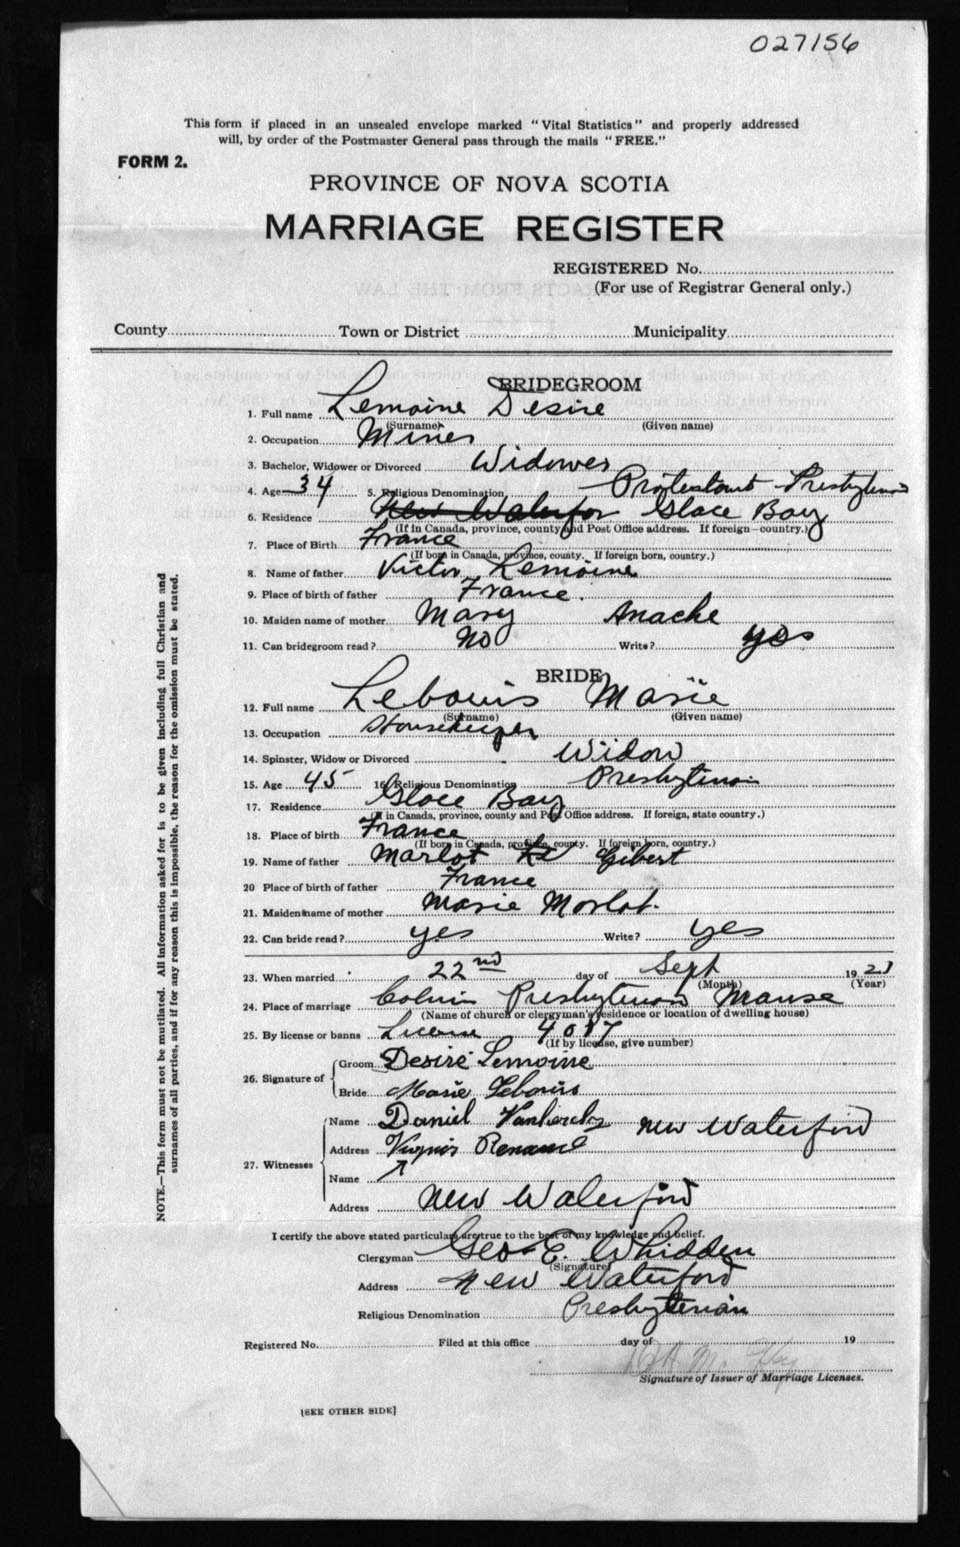 027156
This form if placed in an unsealed envelope marked "Vital Statistics" and properly addressed
will, by order of the Postmaster General pass through the mails "FREE."
FORM 2.
PROVINCE OF NOVA SCOTIA
MARRIAGE REGISTER
REGISTERED No.
(For use of Registrar General only.)
County Town or District Municipality
BRIDEGROOM
1. Full name Lemoine Desire
(Surname) (Given name)
2. Occupation Miner
3. Bachelor, Widower or Divorced Widower
4. Age 34 5. Religious Denomination Protestant Presbyterian
6. Residence New Waterfor Glace Bay
(If in Canada, province, county and Post Office address. If foreign—country.)
7. Place of Birth France
(If born in Canada, province, county. If foreign born, country.)
8. Name of father Victor Lemoine
9. Place of birth of father France.
10. Maiden name of mother Mary Anache
11. Can bridegroom read? No Write? yes
BRIDE
12. Full name Lebouis Marie
(Surname) (Given name)
13. Occupation Housekeeper
14. Spinster, Widow or Divorced Widow
15. Age 45 16. Religious Denomination Presbyterian
17. Residence Glace Bay
(If in Canada, province, county and Post Office address. If foreign, state country.)
18. Place of birth France
(If born in Canada, province, county. If foreign born, country.)
19. Name of father Marlot Gibert
20 Place of birth of father France
21. Maiden name of mother Marie Morlot.
22. Can bride read? yes Write? yes
23. When married 22nd day of Sept 1921
(Month) (Year)
24. Place of marriage Calvin Presbyterian Manse
(Name of church or clergyman's residence or location of dwelling house)
25. By license or banns License 4017
(If by license, give number)
26. Signature of Groom Desiré Lemoine
Bride Marie Lebouis
27. Witnesses Name Daniel New Waterford
Address Renard
Name
Address New Waterford
I certify the above stated particulars are true to the best of my knowledge and belief.
Clergyman Geo. E. Whidden
(Signature)
Address New Waterford
Religious Denomination Presbyterian
Registered No. Filed at this office day of 19
Signature of Issuer of Marriage Licenses.
[SEE OTHER SIDE]
NOTE.—This form must not be mutilated. All information asked for is to be given including full Christian and
surnames of all parties, and if for any reason this is impossible, the reason for the omission must be stated.